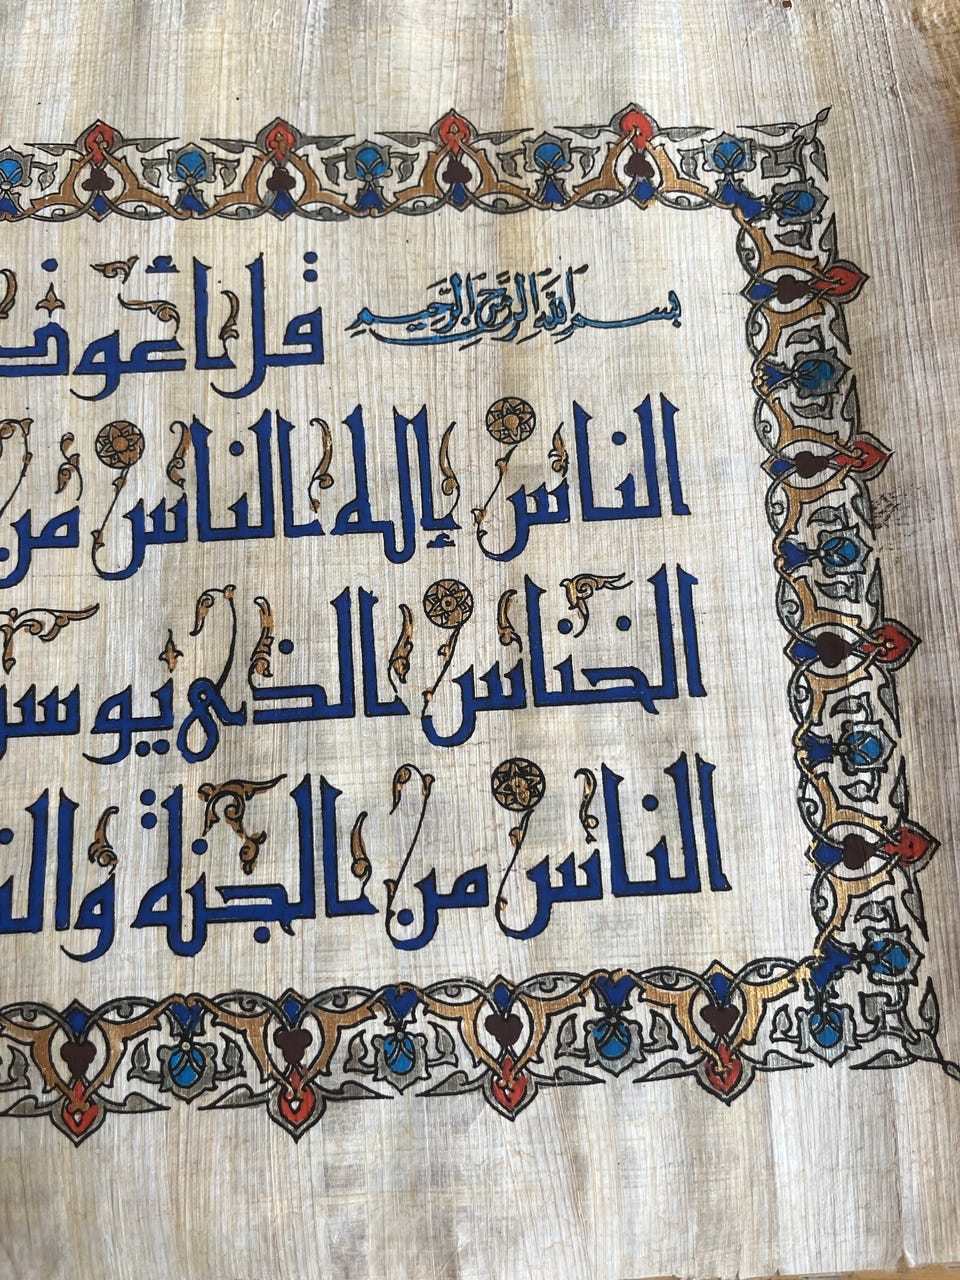 بسم الله الرَّحمَن الرَّحِيم قل أعوذ
الناس إله الناس من
الخناس الذي يوسو
الناس من الجنة والنا